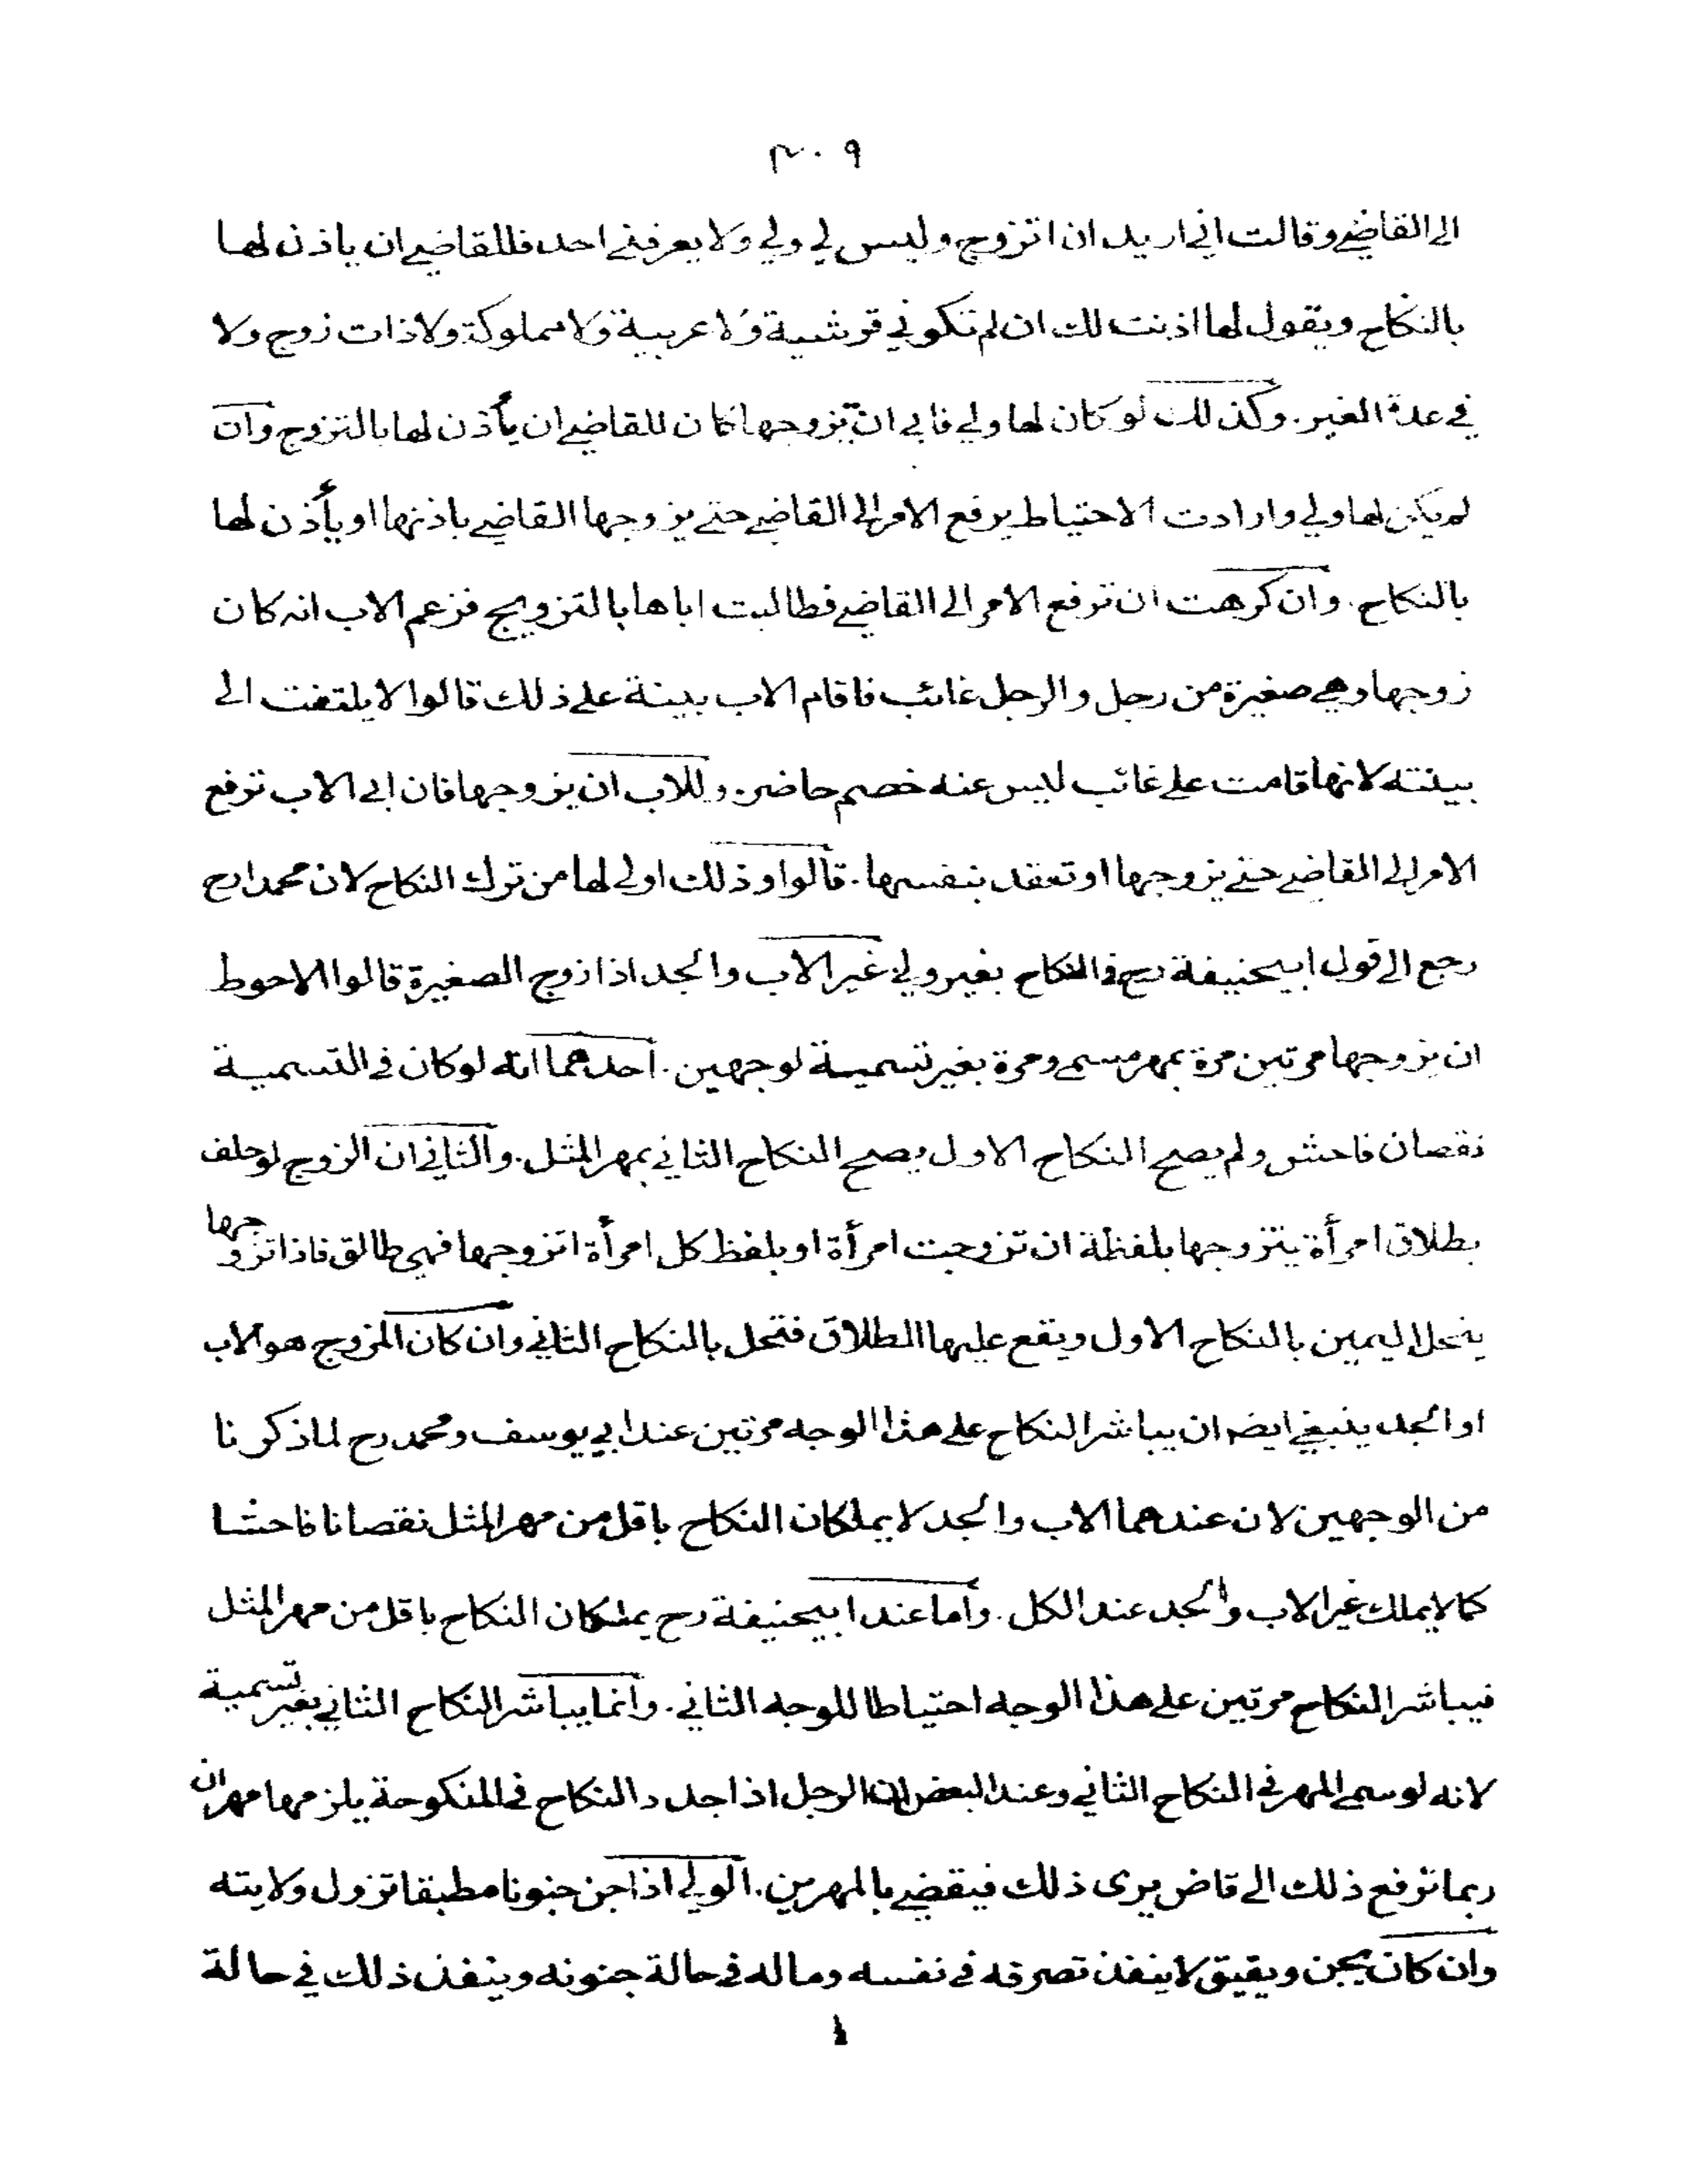 ٣٠٩
الى القاضي وقالت اني اريد ان اتزوج وليس لي ولي ولا يعرفني احد فللقاضي ان ياذن لها
بالنكاح ويقول لها اذنت لك ان لم تكوني قرشية ولا عربية ولا مملوكة ولا ذات زوج ولا
في عدة الغير. وكذلك لو كان لها ولي فابى ان يزوجها كان للقاضي ان يأذن لها بالتزوج وان
لم يكن لها ولي وارادت الاحتياط يرفع الامر الى القاضي حتى يزوجها القاضي باذنها او يأذن لها
بالنكاح. وان كرهت ان ترفع الامر الى القاضي فطالبت اباها بالتزويج فزعم الاب انه كان
زوجها وهي صغيرة من رجل والرجل غائب فاقام الاب بينة على ذلك قالوا لا يلتفت الى
بينته لانها قامت على غائب ليس عنه خصم حاضر. وللاب ان يزوجها فان ابى الاب ترفع
الامر الى القاضي حتى يزوجها او تعقد بنفسها. قالوا وذلك اولى لها من ترك النكاح لان محمدا رح
رجع الى قول ابيحنيفة رح في النكاح بغير ولي غير الاب والجد اذا زوج الصغيرة قالوا الاحوط
ان يزوجها مرتين مرة بمهر مسمى ومرة بغير تسمية لوجهين. احدهما انه لو كان في التسمية
نقصان فاحش ولم يصح النكاح الاول يصح النكاح الثاني بمهر المثل. والثاني ان الزوج لو حلف
بطلاق امرأة يتزوجها بلفظة ان تزوجت امرأة او بلفظ كل امرأة اتزوجها فهي طالق فاذا تزوجها
ينحل اليمين بالنكاح الاول ويقع عليها الطلاق فتحل بالنكاح الثاني وان كان المزوج هو الاب
او الجد ينبغي ايضه ان يباشر النكاح على هذا الوجه مرتين عند ابي يوسف ومحمد رح لما ذكرنا
من الوجهين لان عندهما الاب والجد لا يملكان النكاح باقل من مهر المثل نقصانا فاحشا
كما لا يملك غير الاب والجد عند الكل. واما عند ابيحنيفة رح يملكان النكاح باقل من مهر المثل
فيباشر النكاح مرتين على هذا الوجه احتياطا للوجه الثاني. وانما يباشر النكاح الثاني بغير تسمية
لانه لو سمى المهر في النكاح الثاني وعند البعض ان الرجل اذا جدد النكاح في المنكوحة يلزمها مهران
ربما ترفع ذلك الى قاض يرى ذلك فيقضي بالمهرين. الولي اذا جن جنونا مطبقا تزول ولايته
وان كان يجن ويفيق لا ينفذ تصرفه في نفسه وماله في حالة جنونه وينفذ ذلك في حالة